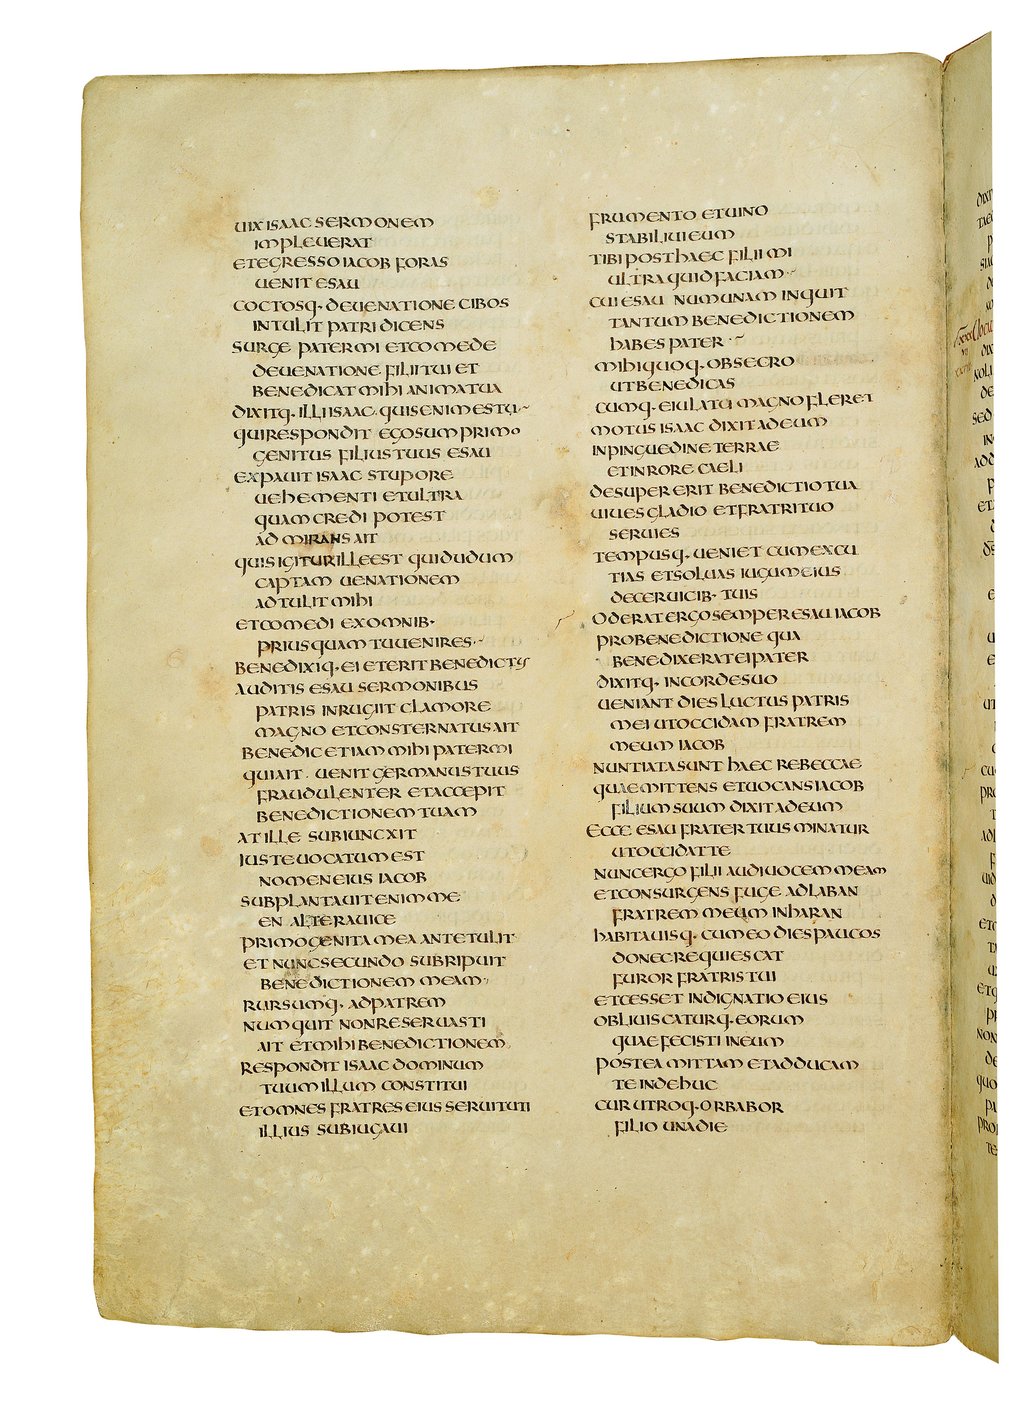 UIX ISAAC SERMONEM
IMPLEUERAT
ET EGRESSO IACOB FORAS
UENIT ESAU
COCTOSQ· DE UENATIONE CIBOS
INTULIT PATRI DICENS
SURGE PATER MI ET COMEDE
DE UENATIONE FILII TUI ET
BENEDICAT MIHI ANIMA TUA
DIXITQ· ILLI ISAAC· QUIS ENIM ES TU·~
QUI RESPONDIT EGO SUM PRIMO
GENITUS FILIUS TUUS ESAU
EXPAUIT ISAAC STUPORE
UEHEMENTI ET ULTRA
QUAM CREDI POTEST
ADMIRANS AIT
QUIS IGITUR ILLE EST QUI DUDUM
CAPTAM UENATIONEM
ADTULIT MIHI
ET COMEDI EX OMNIB·
PRIUSQUAM TU UENIRES·~
BENEDIXIQ· EI ET ERIT BENEDICTUS
AUDITIS ESAU SERMONIBUS
PATRIS INRUGIIT CLAMORE
MAGNO ET CONSTERNATUS AIT
BENEDIC ETIAM MIHI PATER MI
QUI AIT · UENIT GERMANUS TUUS
FRAUDULENTER ET ACCEPIT
BENEDICTIONEM TUAM
AT ILLE SUBIUNCXIT
IUSTE UOCATUM EST
NOMEN EIUS IACOB
SUBPLANTAUIT ENIM ME
EN ALTERA UICE
PRIMOGENITA MEA ANTE TULIT
ET NUNC SECUNDO SUBRIPUIT
BENEDICTIONEM MEAM·
RURSUMQ· AD PATREM
NUMQUIT NON RESERUASTI
AIT ET MIHI BENEDICTIONEM
RESPONDIT ISAAC DOMINUM
TUUM ILLUM CONSTITUI
ET OMNES FRATRES EIUS SERUITUTI
ILLIUS SUBIUGAUI
FRUMENTO ET UINO
STABILIUI EUM
TIBI POST HAEC FILI MI
ULTRA QUID FACIAM·~
CUI ESAU NUM UNAM INQUIT
TANTUM BENEDICTIONEM
HABES PATER·~
MIHI QUOQ· OBSECRO
UT BENEDICAS
CUMQ· EIULATU MAGNO FLERET
MOTUS ISAAC DIXIT AD EUM
IN PINGUEDINE TERRAE
ET IN RORE CAELI
DESUPER ERIT BENEDICTIO TUA
UIUES GLADIO ET FRATRI TUO
SERUIES
TEMPUSQ· UENIET CUM EXCU
TIAS ET SOLUAS IUGUM EIUS
DE CERUICIB· TUIS
ODERAT ERGO SEMPER ESAU IACOB
PRO BENEDICTIONE QUA
BENEDIXERAT EI PATER
DIXITQ· IN CORDE SUO
UENIANT DIES LUCTUS PATRIS
MEI UT OCCIDAM FRATREM
MEUM IACOB
NUNTIATA SUNT HAEC REBECCAE
QUAE MITTENS ET UOCANS IACOB
FILIUM SUUM DIXIT AD EUM
ECCE ESAU FRATER TUUS MINATUR
UT OCCIDAT TE
NUNC ERGO FILI AUDI UOCEM MEAM
ET CONSURGENS FUGE AD LABAN
FRATREM MEUM IN HARAN
HABITAUISQ· CUM EO DIES PAUCOS
DONEC REQUIESCAT
FUROR FRATRIS TUI
ET CESSET INDIGNATIO EIUS
OBLIUISCATURQ· EORUM
QUAE FECISTI IN EUM
POSTEA MITTAM ET ADDUCAM
TE INDE HUC
CUR UTROQ· ORBABOR
FILIO UNA DIE